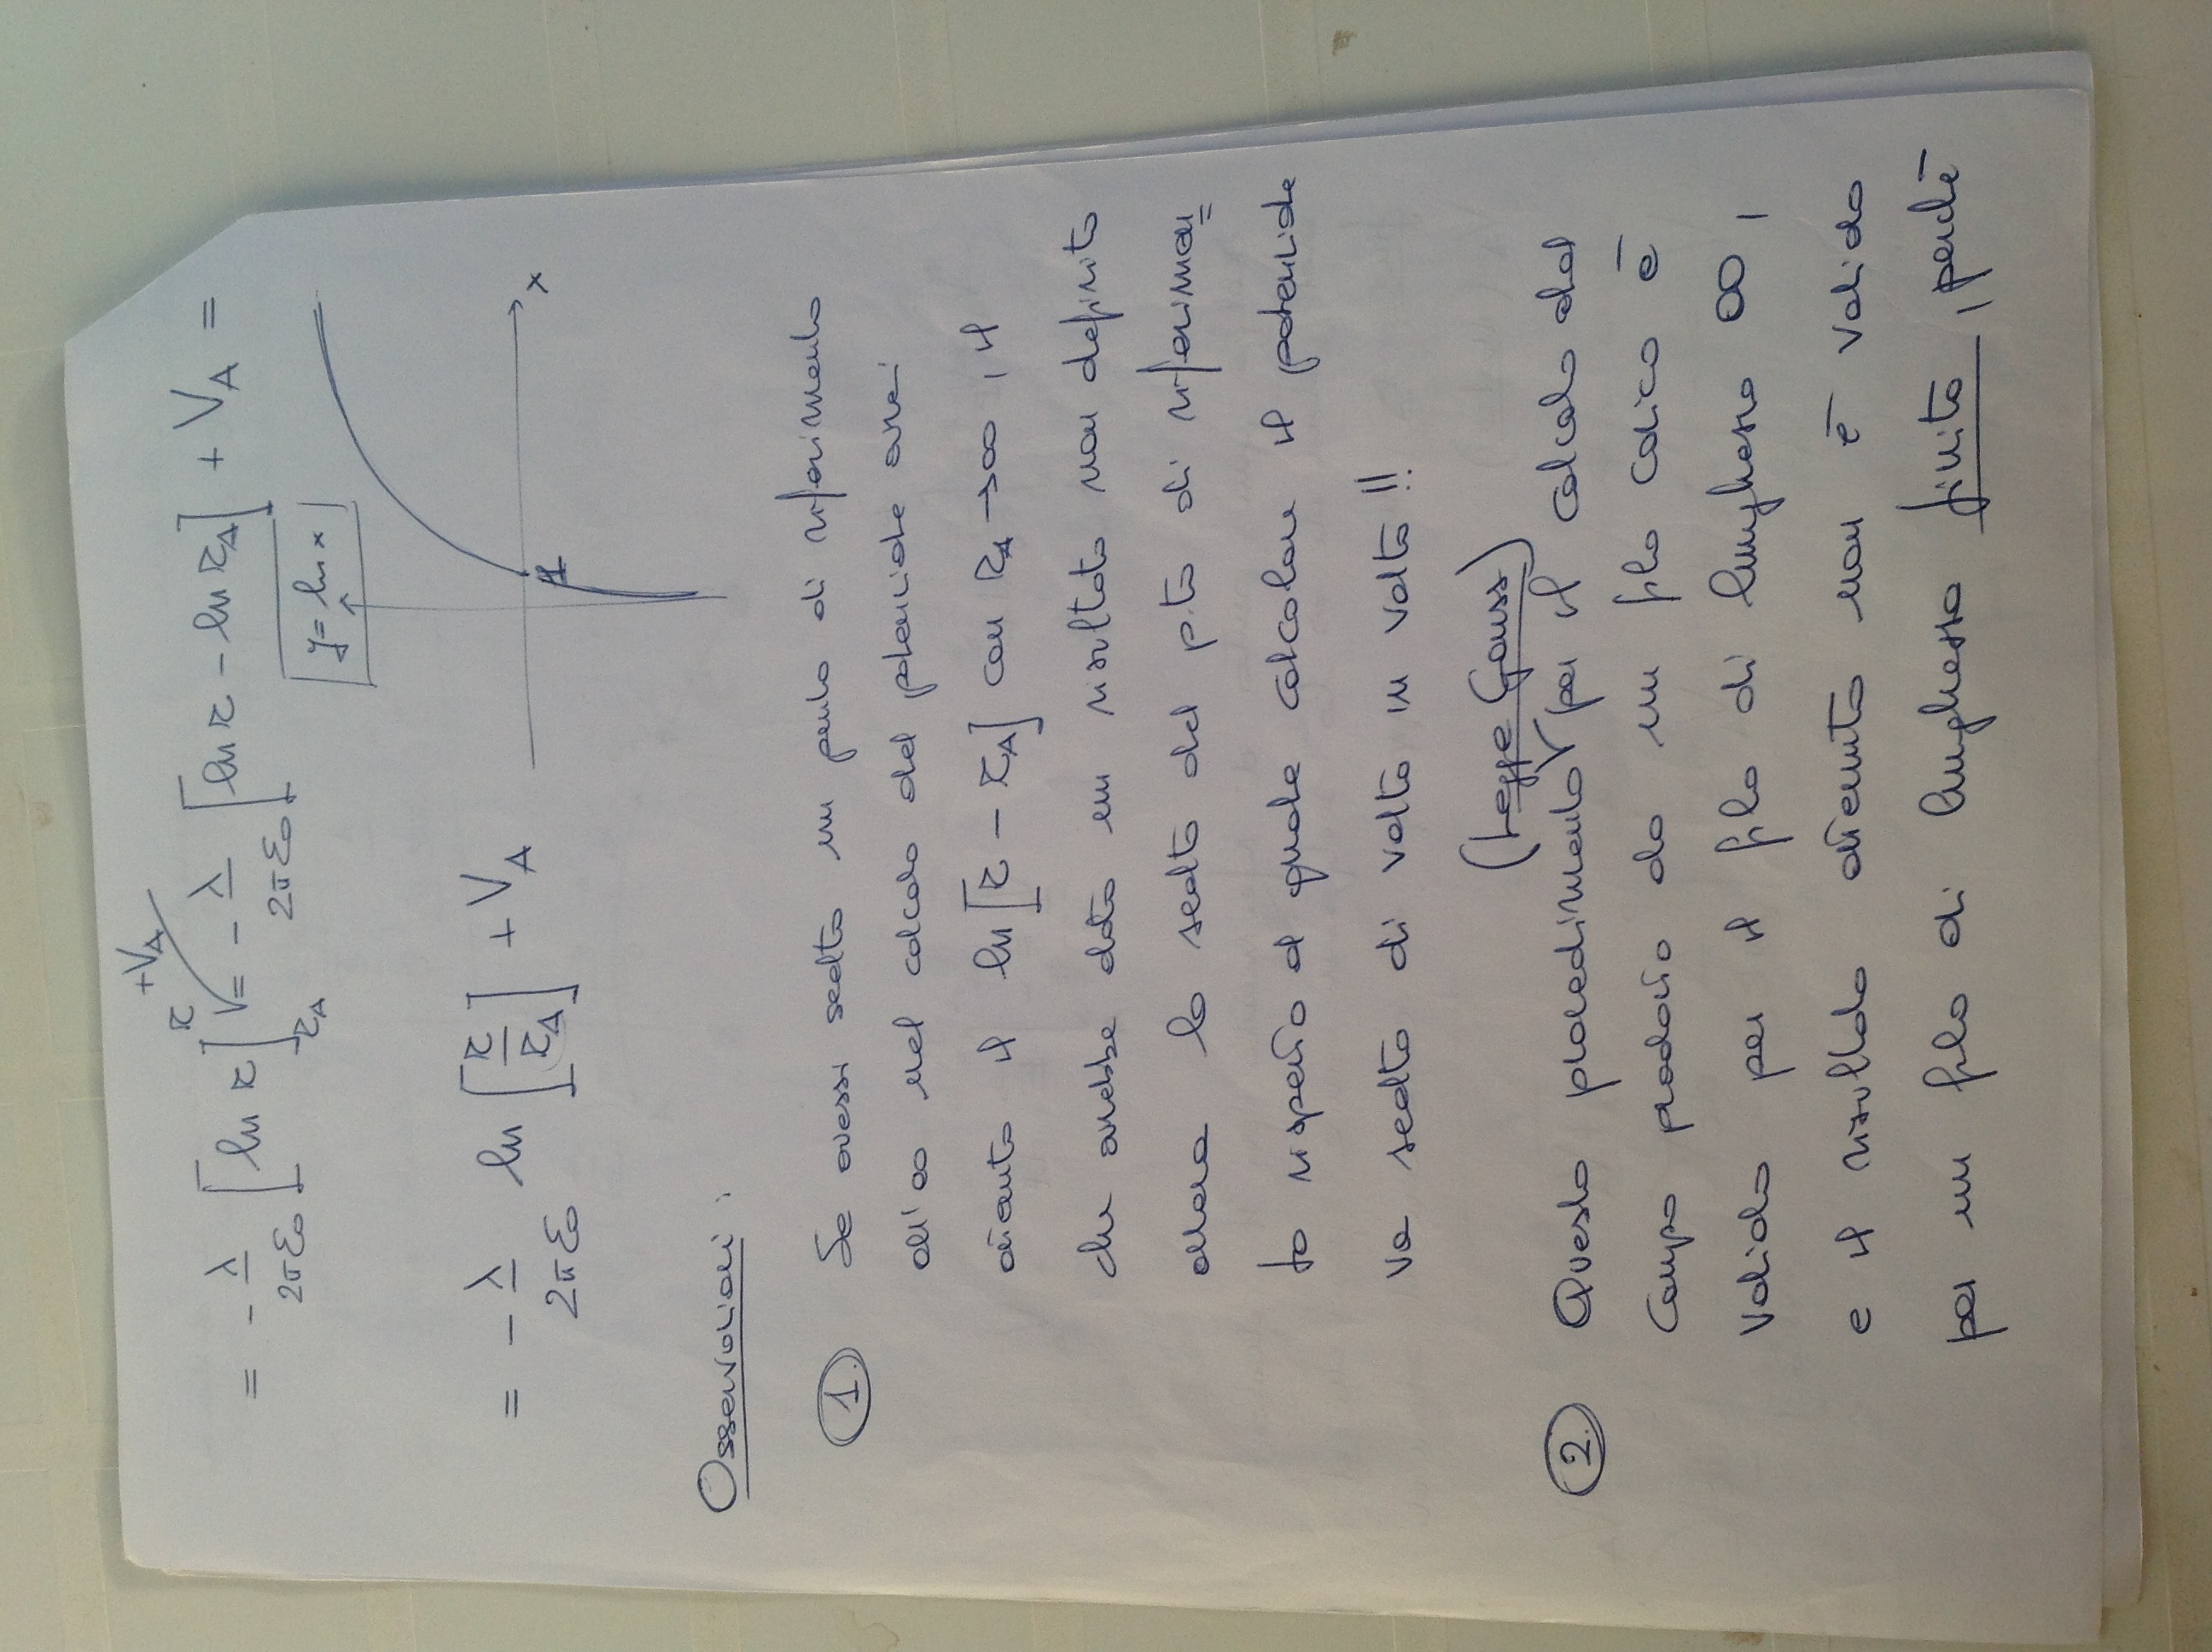 = - λ/2πε₀ [ln r]_{r_A}^{r} +V_A = - λ/2πε₀ [ln r - ln r_A] + V_A =
y = ln x
= - λ/2πε₀ ln [r/r_A] + V_A
1
x
Osservazioni :
1. Se avessi scelto un punto di riferimento
all'∞ nel calcolo del potenziale avrei
ottenuto il ln[r - r_A] con r_A → ∞, il
che avrebbe dato un risultato non definito
allora la scelta del p.to di riferimen=
to rispetto al quale calcolare il potenziale
va scelto di volta in volta !!
(Legge Gauss)
2. Questo procedimento per il calcolo del
campo prodotto da un filo carico è
valido per il filo di lunghezza ∞,
e il risultato ottenuto non è valido
per un filo di lunghezza finita, perchè